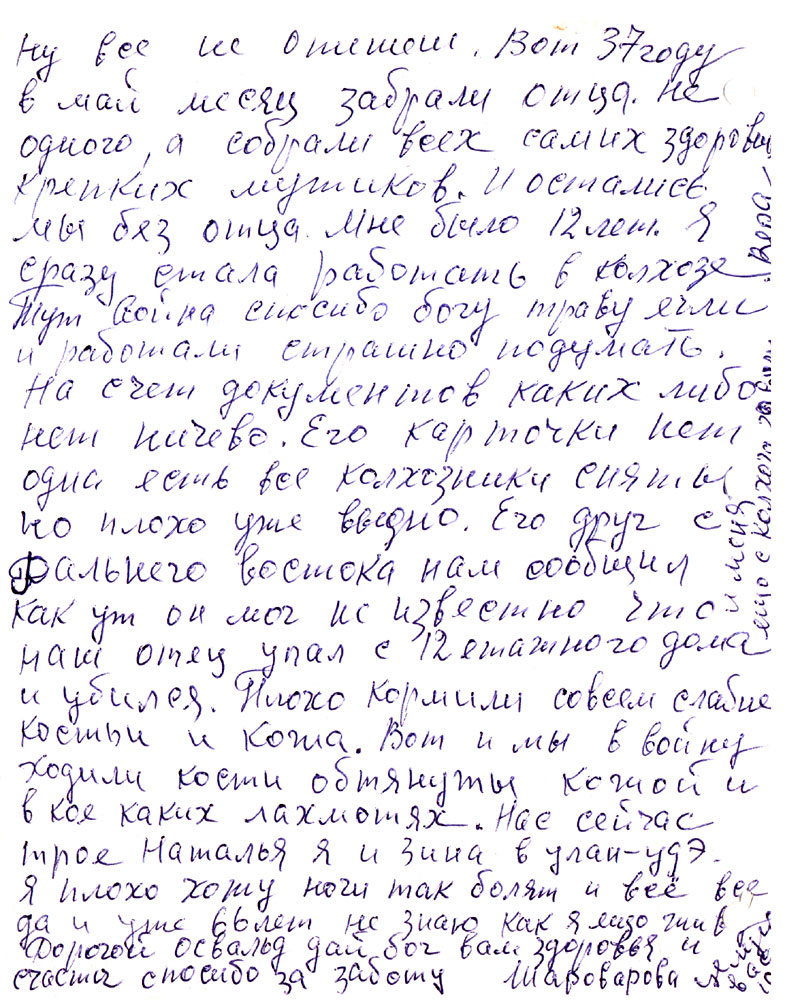 Ну все не опишеш. Вот 37 году
в май месяц забрали отца. не
одного, а собрали всех самих здоровых
крепких мужиков. И остались
мы без отца. Мне было 12 лет. Я
сразу стала работать в колхозе
Тут война спосибо богу траву ели
и работали страшно подумать.
На счет документов каких либо
нет ничево. Его карточки нет
одна есть все колхозники сняты
но плохо уже видно. Его друг с
Дальнего востока нам сообщил
как ут он мог не известно что
наш отец упал с 12 етажного дома
и убился. Плохо кормили совсем слабые
костьи и кожа. Вот и мы в войну
ходили кости обтянуты кожой и
в кое каких лахмотях. Нас сейчас
трое Наталья я и Зина в улан-удэ.
Я плохо хожу ноги так болят и всё все
да и уже 66 лет не знаю как я ищо жива
Дорогой освальд дай бог вам здоровья и
счастья спосибо за заботу Шароварова
и меня
ещо с колхоза